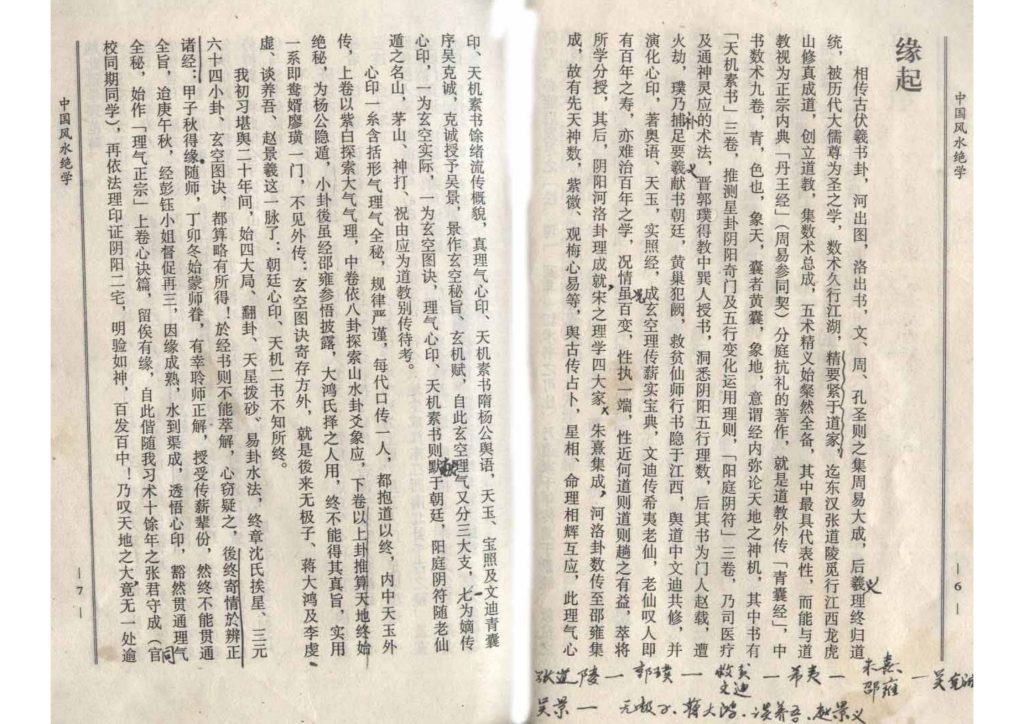 中国风水绝学
—6—
缘起
相传古伏羲书卦，河出图，洛出书，文、周、孔圣则之集周易大成，后羲理终归道
统，被历代大儒尊为圣之学，数术久行江湖，精要紧于道家，迄东汉张道陵觅行江西龙虎
山修真成道，创立道教，集数术总成，五术精义始粲然全备，其中最具代表性，而能与道
教视为正宗内典「丹王经」（周易参同契）分庭抗礼的著作，就是道教外传「青囊经」，中
书数术九卷，青，色也，象天，囊者黄囊，象地，意谓经内弥论天地之神机，其中书有
「天机素书」三卷，推测星卦阴阳奇门及五行变化运用理则，「阳庭阴符」三卷，乃司医疗
及通神灵应的术法，晋郭璞得教中巽人授书，洞悉阴阳五行理数，后其书为门人赵载，遭
火劫，璞乃捕足要羲献书朝廷，黄巢犯阙，救贫仙师行书隐于江西，舆道中文迪共修，并
演化心印，著奥语、天玉，实照经，成玄空理传薪实宝典，文迪传希夷老仙，老仙叹人即
有百年之寿，亦难治百年之学，况情虽百变，性执一端，性近何道则道则趟之有益，萃将
所学分授，其后，阴阳河洛卦理成就宋之理学四大家，朱熹集成，河洛卦数传至邵雍集
成，故有先天神数，紫微、观梅心易等，舆古传占卜，星相、命理相辉互应，此理气心
补
义
况
义
张道陵— 郭璞— 救贫 文迪— 希夷— 朱熹 邵雍—吴克诚
吴景— 无极子、蒋大鸿、谈养吾、赵景义
印、天机素书馀绪流传概貌，真理气心印、天机素书隋杨公舆语，天玉、宝照及文迪青囊
序吴克诚，克诚授予吴景，景作玄空秘旨、玄机赋，自此玄空理气又分三大支，七为嫡传
心印，一为玄空实际，一为玄空图诀，理气心印、天机素书则默于朝廷，阳庭阴符随老仙
遁之名山，茅山、神打、祝由应为道教别传待考。
心印一糸含括形气理气全秘，规律严谨，每代口传一人，都抱道以终，内中天玉外
传，上卷以紫白探索大气气理，中卷依八卦探索山水卦爻象应，下卷以上卦推算天地终始
绝秘，为杨公隐遁，小卦後虽经邵雍参悟披露，大鸿氏择之人用，终不能得其真旨，实用
一系即鸯婿廖璜一门，不见外传：玄空图诀寄存方外，就是後来无极子、蒋大鸿及李虔
虚、谈养吾、赵景羲这一脉了：朝廷心印、天机二书不知所终。
我初习堪舆二十年间，始四大局、翻卦、天星拨砂、易卦水法，终章沈氏挨星、三元
六十四小卦、玄空图诀，都算略有所得！於经书则不能萃解，心窃疑之，後终寄情於辨正
诸经：甲子秋得缘随师，丁卯冬始蒙师眷，有幸聆师正解，授受传薪辈份，然终不能贯通
全旨，迨庚午秋，经彭钰小姐督促再三，因缘成熟，水到渠成，透悟心印，豁然贯通理气
全秘，始作「理气正宗」上卷心诀篇，留俟有缘，自此偕随我习术十馀年之张君守成（官
校同期同学），再依法理印证阴阳二宅，明验如神，百发百中！乃叹天地之大竟无一处逾
司
中国风水绝学
—7—